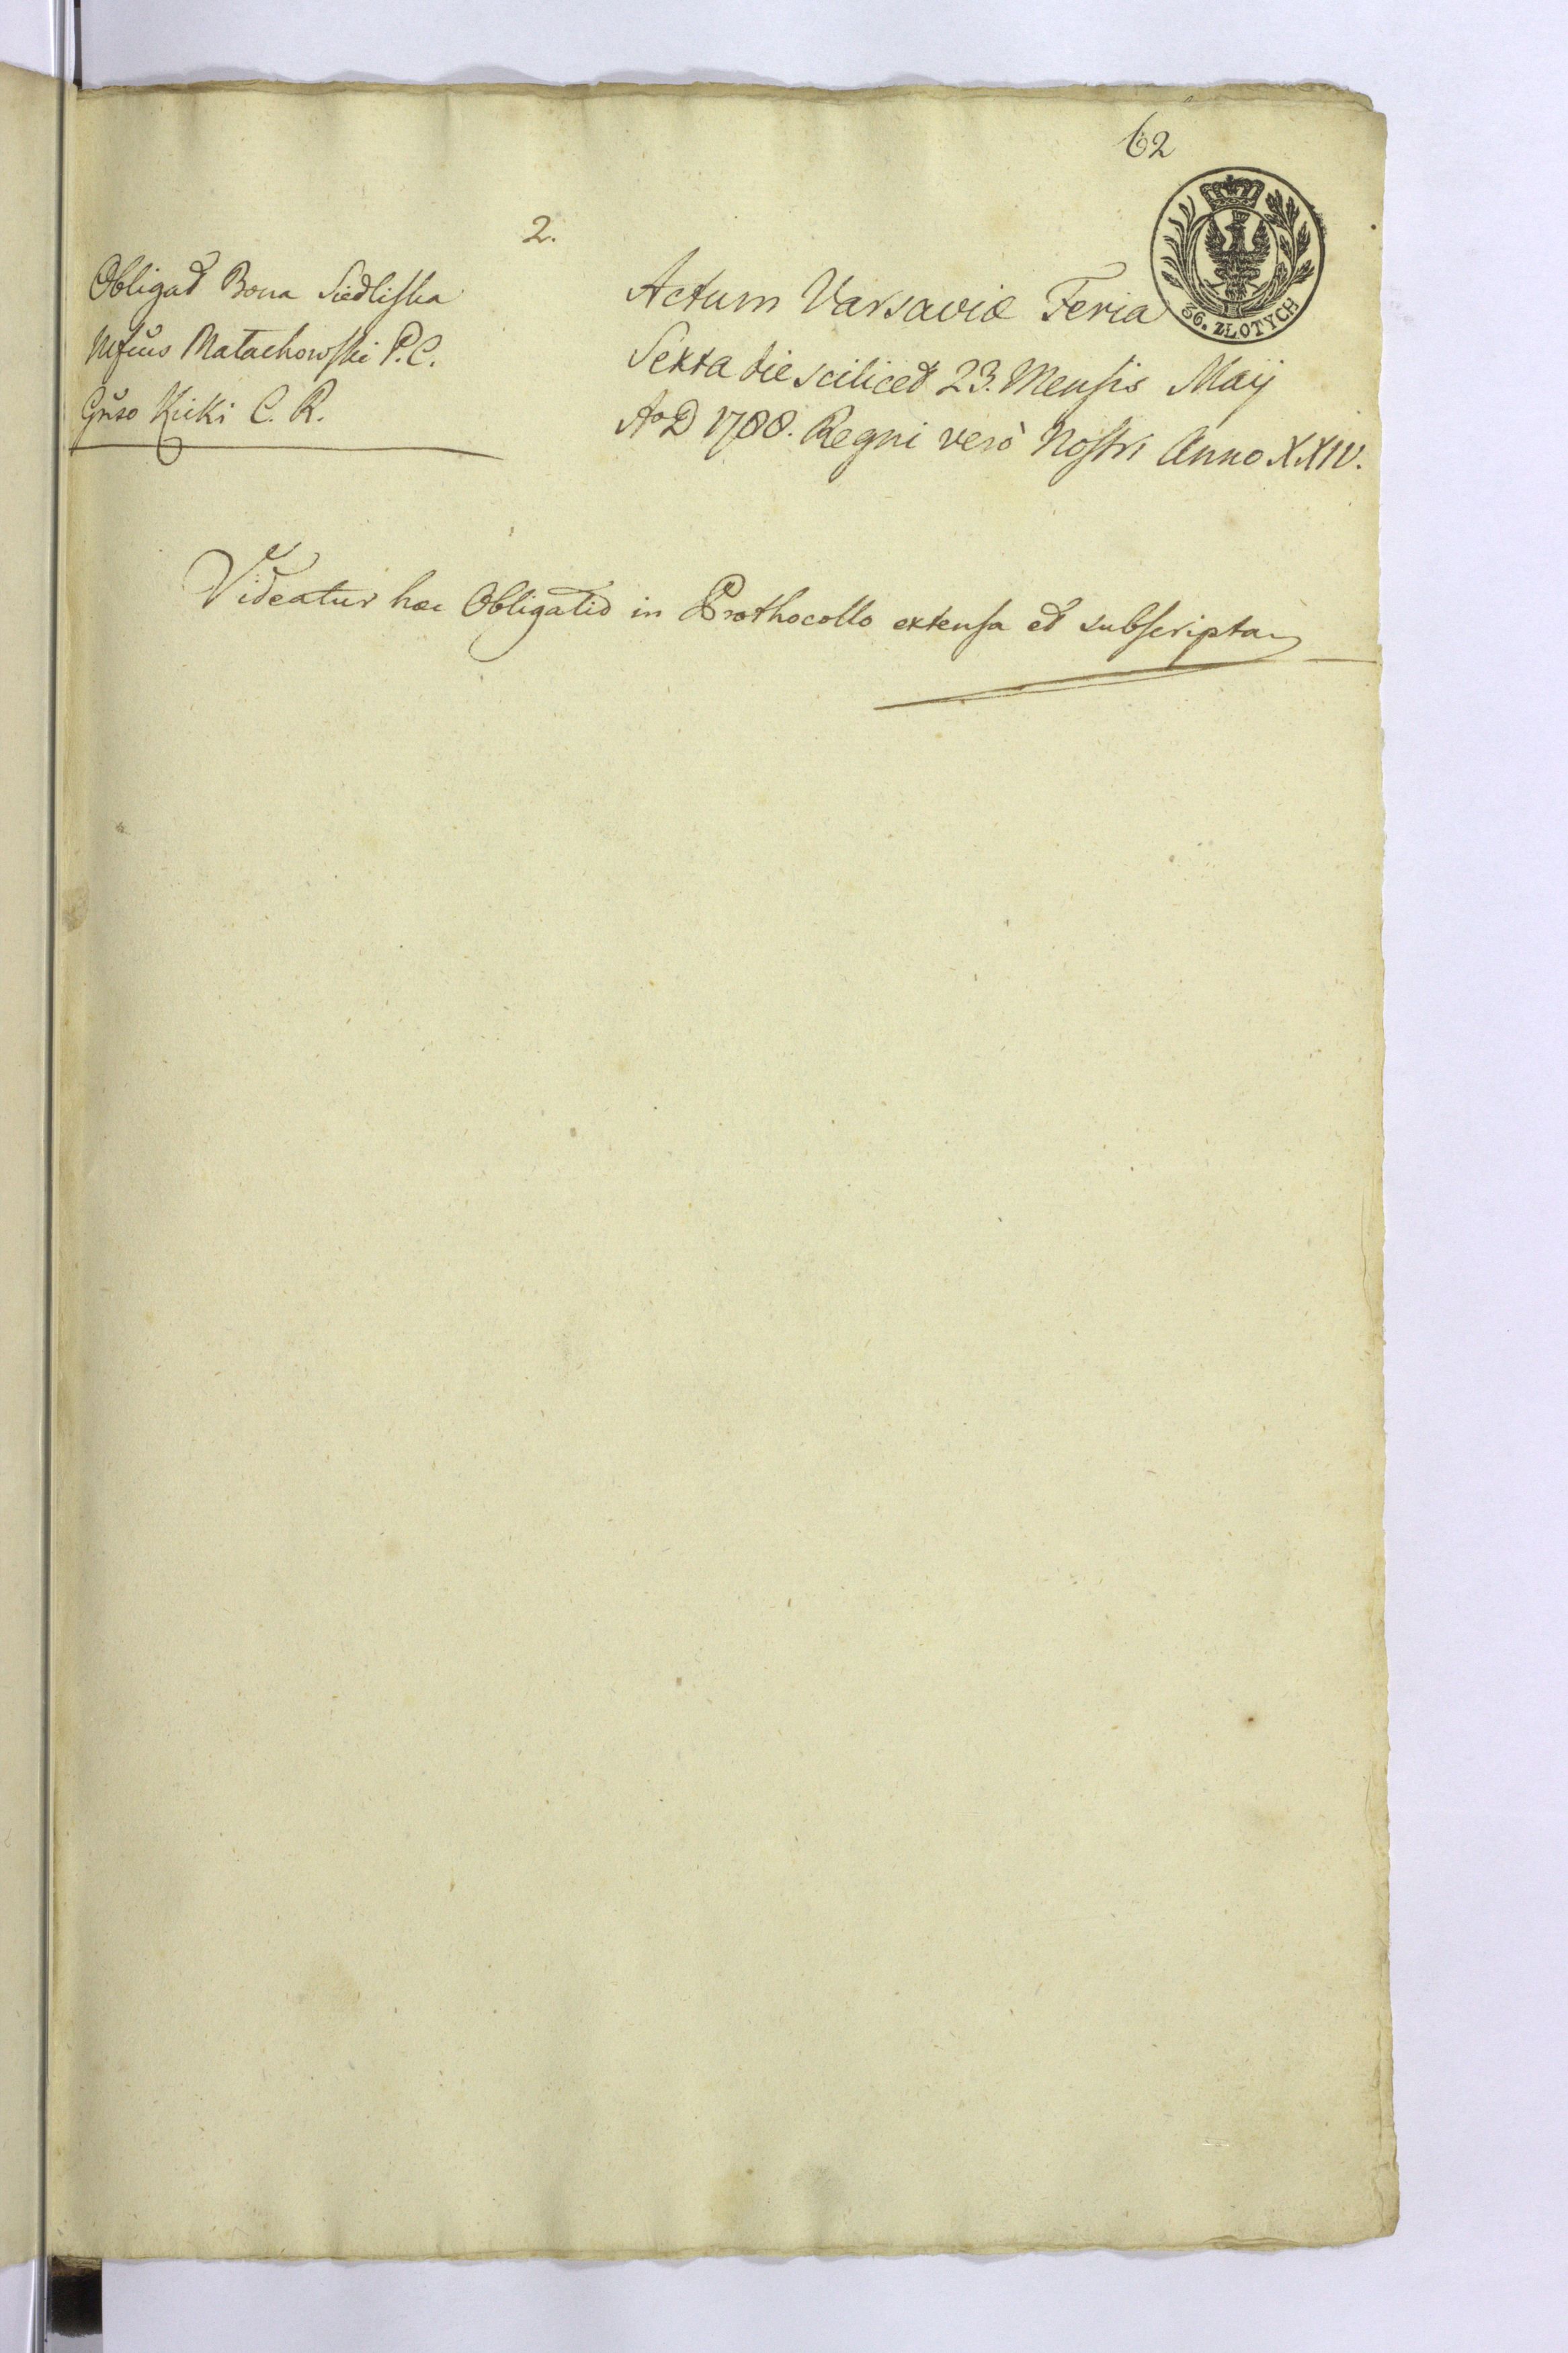 62
2.
36. ZŁOTYCH
Obligat Bona Siedliska
Mfcus Małachowski P. C.
Gnso Kicki C. R.
Actum Varsaviæ Feria
Sexta die scilicet 23. Mensis Maij
AoD 1788. Regni verò Nostri Anno XXIV.
Videatur hæc Obligatio in Prothocollo extensa et subscripta